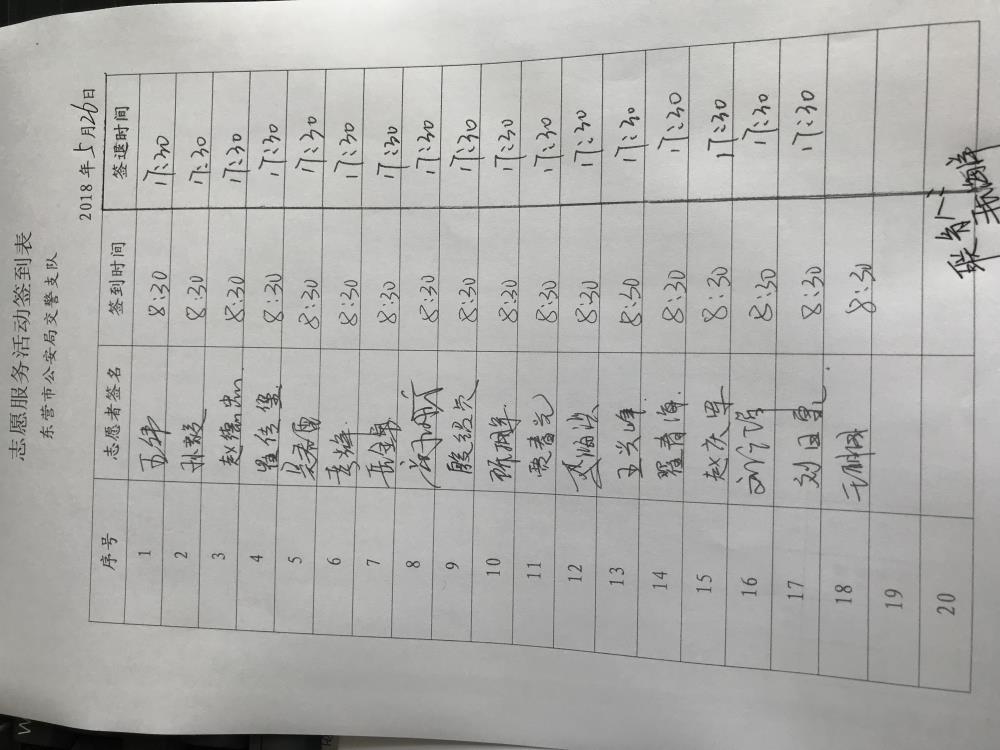 志愿服务活动签到表
东营市公安局交警支队
2018 年 5 月 26 日
序号 志愿者签名 签到时间 签退时间
1 王伟 8:30 17:30
2 孙毅 8:30 17:30
3 赵德忠 8:30 17:30
4 崔传堡 8:30 17:30
5 吴希雷 8:30 17:30
6 袁辉 8:30 17:30
7 8:30 17:30
8 8:30 17:30
9 8:30 17:30
10 8:30 17:30
11 贾春光 8:30 17:30
12 8:30 17:30
13 王兴峰 8:30 17:30
14 翟春海 8:30 17:30
15 赵庆军 8:30 17:30
16 8:30 17:30
17 8:30 17:30
18 8:30
19
20